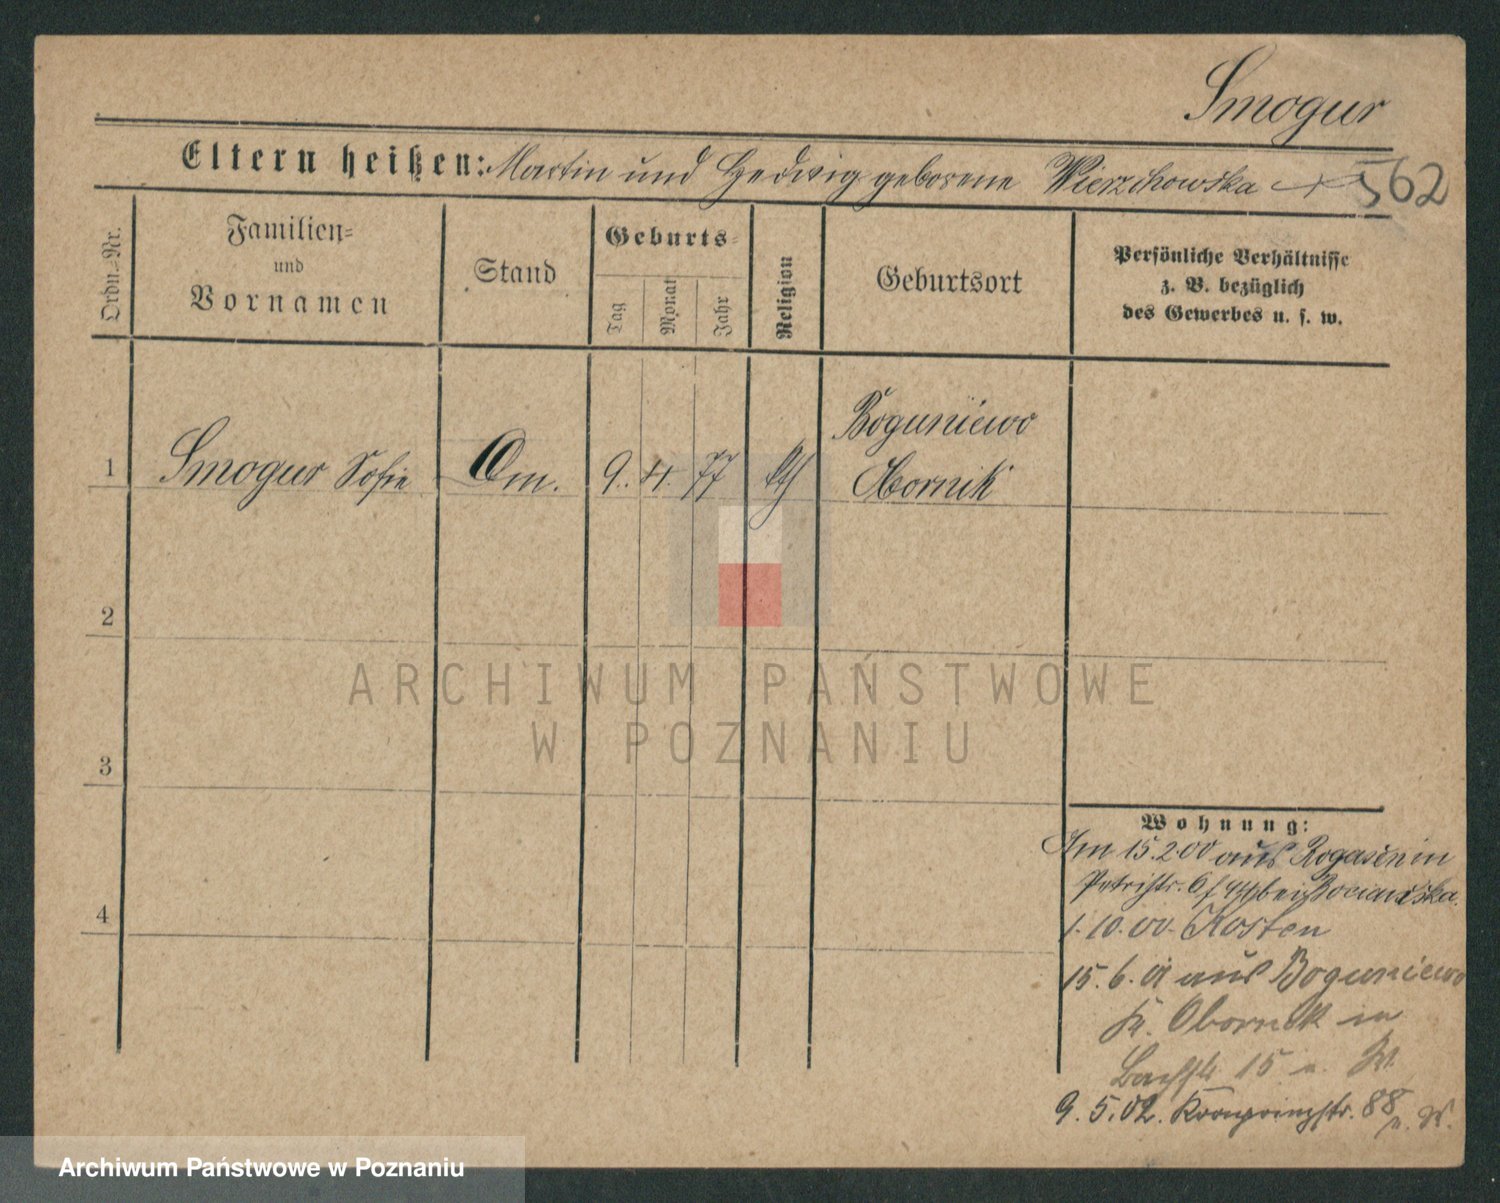 Smogur
Eltern heißen: Martin und Hedwig geborene Wierzchowska
562
Ordn.=Nr.
Familien=
und
Vornamen
Stand
Geburts=
Tag
Monat
Jahr
Religion
Geburtsort
Persönliche Verhältnisse
z. B. bezüglich
des Gewerbes u. s. w.
Boguniewo
1 Smogur Sofie m. 9. 4. 77 kth Obornik
2
3
4
ARCHIWUM PAŃSTWOWE
W POZNANIU
Wohnung:
Am 15.2.00 aus Rogasen in
Petristr. 6 bei
1.10.00. Kosten
15.6.01 aus Boguniewo
Kr. Obornik in
Bachstr 15
9.5.02. Kronprinzstr. 88
Archiwum Państwowe w Poznaniu